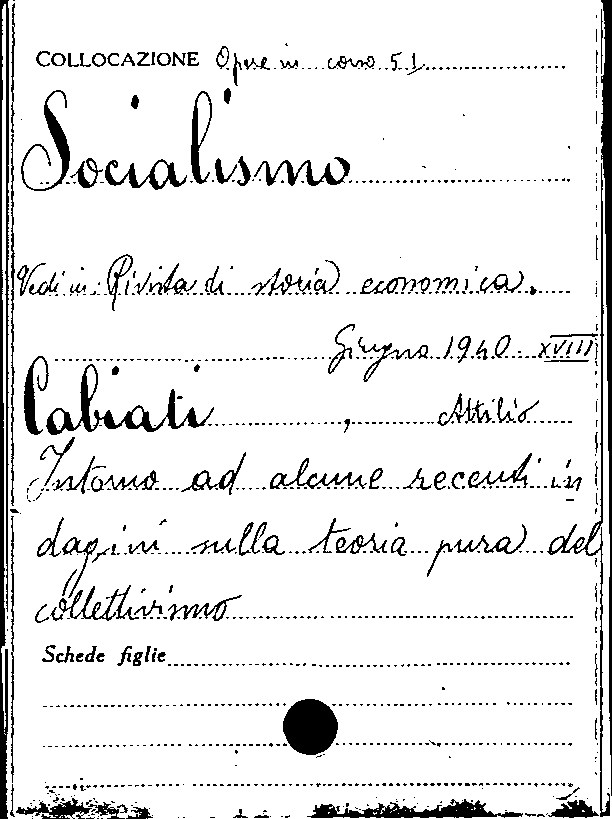 COLLOCAZIONE Opere in corso 51
Socialismo
Vedi in: Rivista di storia economica.
Giugno 1940 XVIII
Cabiati, Attilio
Intorno ad alcune recenti in
dagini sulla teoria pura del
collettivismo
Schede figlie